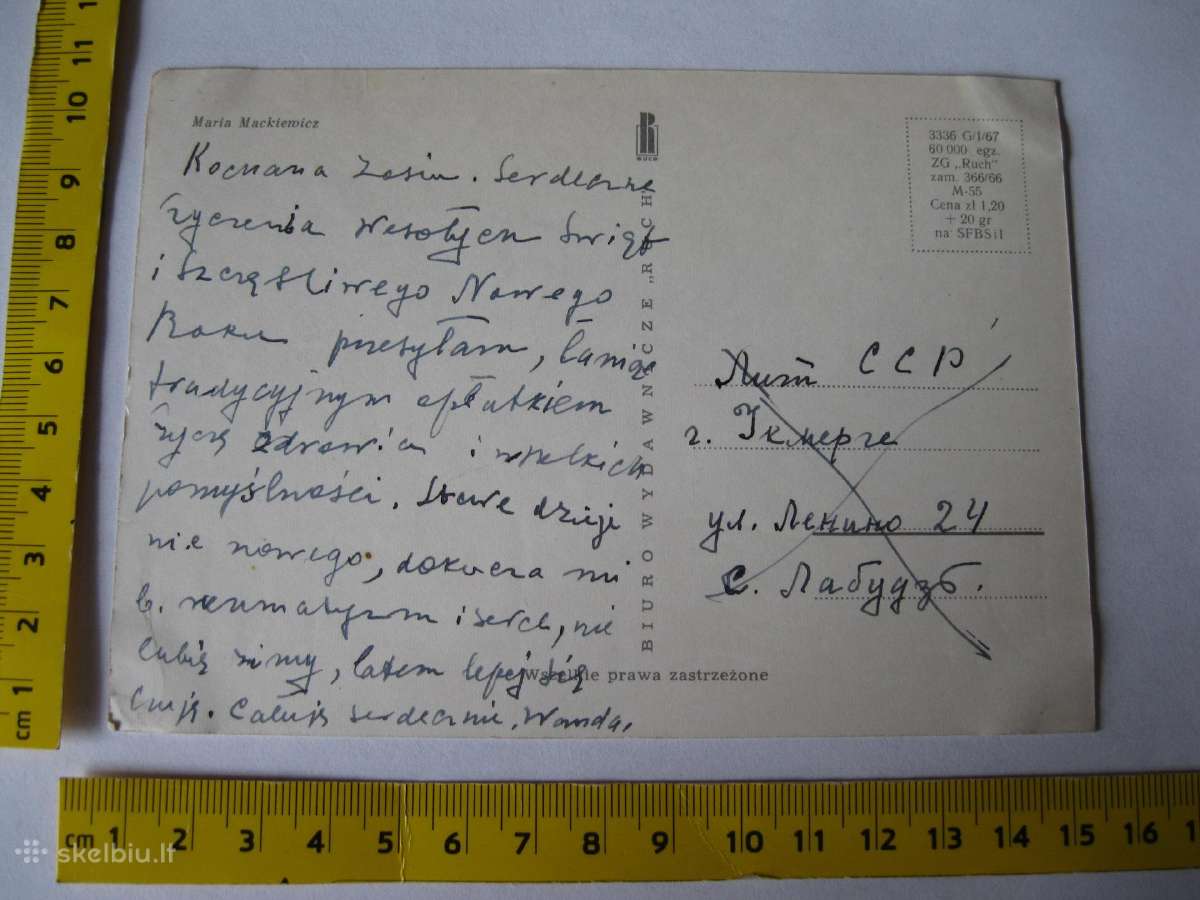 Maria Mackiewicz
Kochana Zosiu. Serdeczne
życzenia wesołych Świąt
i szczęśliwego Nowego
Roku przesyłam, łamiąc
tradycyjnym opłatkiem
życzę zdrowia i wszelkich
pomyślności.
nic nowego, dokucza mi
b. reumatyzm i serce, nie
lubię zimy, latem lepiej się
czuję. Całuję serdecznie, Wanda.
RUCH
BIURO WYDAWNICZE „RUCH"
Wszelkie prawa zastrzeżone
3336 G/I/67
60 000 egz.
ZG „Ruch"
zam. 366/66
M-55
Cena zł 1,20
+ 20 gr
na SFBSiI
Лит ССР
г. Укмерге
ул. Ленино 24
С. Лабудзь.
cm 1 2 3 4 5 6 7 8 9 10 11
cm 1 2 3 4 5 6 7 8 9 10 11 12 13 14 15 16 1
skelbiu.lt